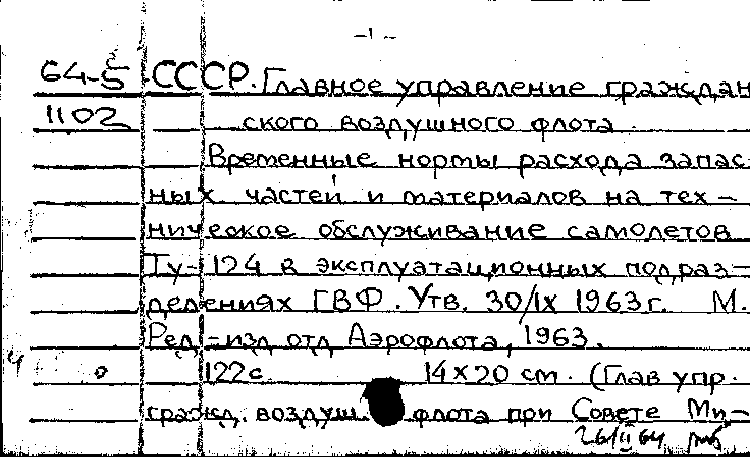 -1-
64-5 СССР. Главное управление граждан
1102 ского воздушного флота
Временные нормы расхода запас
ных частей и материалов на тех-
ническое обслуживание самолетов
Ту-124 в эксплуатационных подраз-
делениях ГВФ. Утв. 30/IX 1963г. М.
Ред-изд отд Аэрофлота, 1963.
122с 14х20 см. (Глав упр.
гражд. воздуш. флота при Совете Ми-
26/II 64